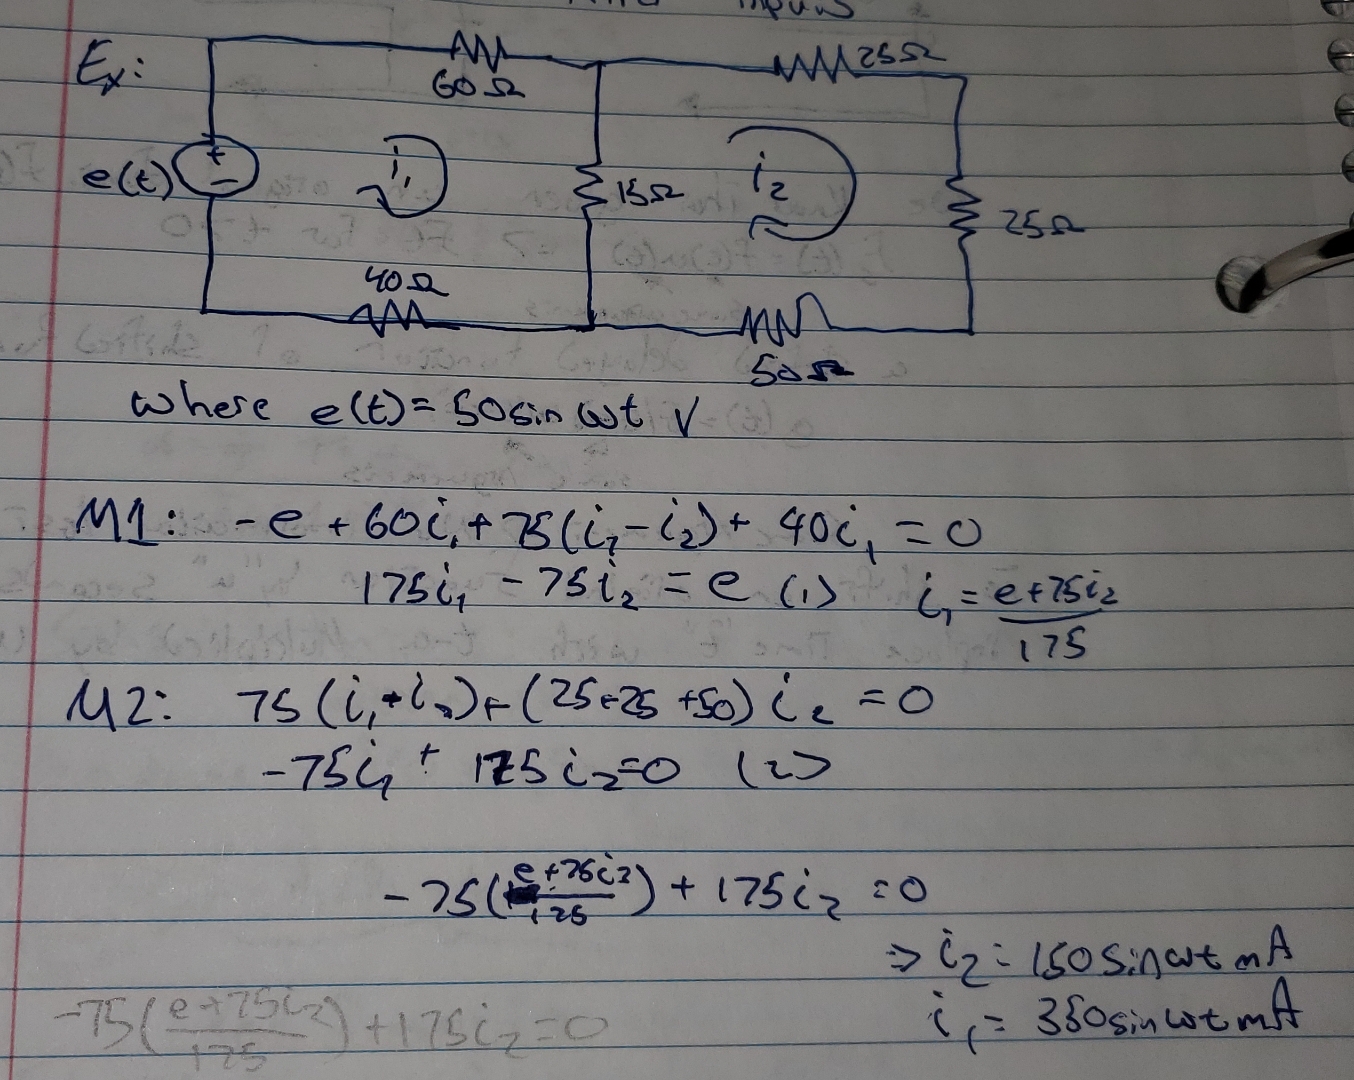 inputs
Ex:
60Ω
25Ω
e(t)
+
-
i₁
15Ω
i₂
25Ω
40Ω
50Ω
where e(t)= 50sin ωt V
M1: -e + 60i₁ + 75(i₁-i₂) + 40i₁ = 0
175i₁ - 75i₂ = e (1) i₁ = e+75i₂ / 175
M2: 75(i₁+i₂)+(25+25+50)i₂ = 0
-75i₁ + 175i₂=0 (2)
-75(e+75i₂ / 125) + 175i₂ = 0
⇒ i₂ = 150sinωt mA
-75(e+75i₂ / 175) + 175i₂ = 0
i₁ = 350sinωt mA